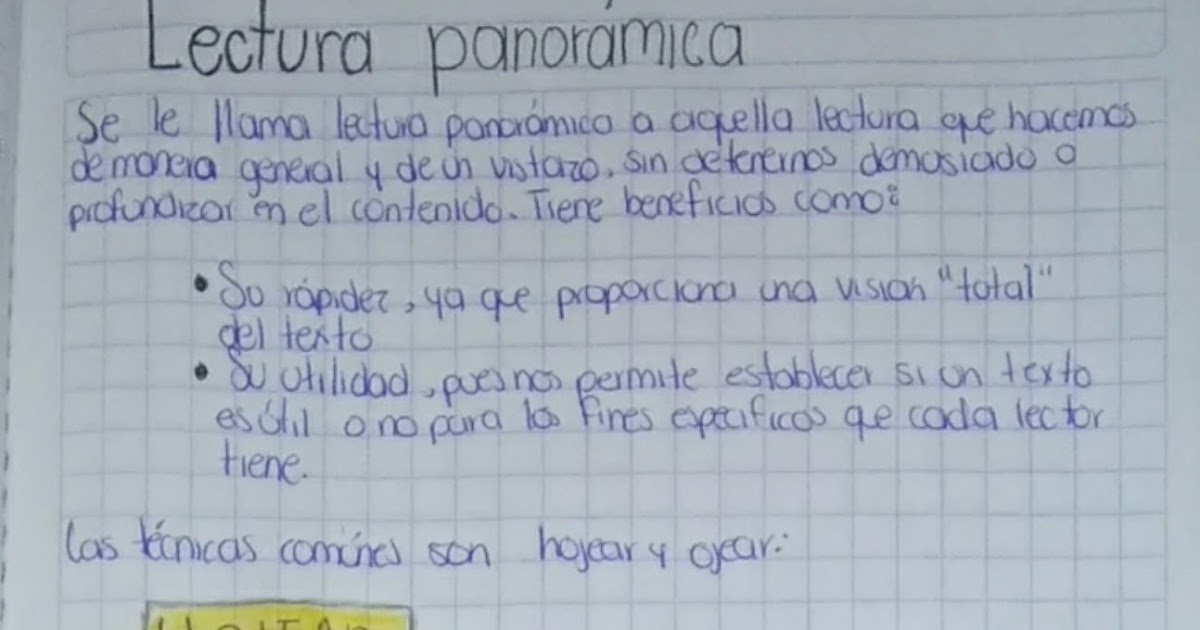 Lectura panorámica
Se le llama lectura panorámica a aquella lectura que hacemos
de manera general y de un vistazo, sin detenernos demasiado o
profundizar en el contenido. Tiene beneficios como:
• Su rápidez, ya que proporciona una visión "total"
del texto
• Su utilidad, pues nos permite establecer si un texto
es útil o no para los fines específicos que cada lector
tiene.
Las técnicas comúnes son hojear y ojear: